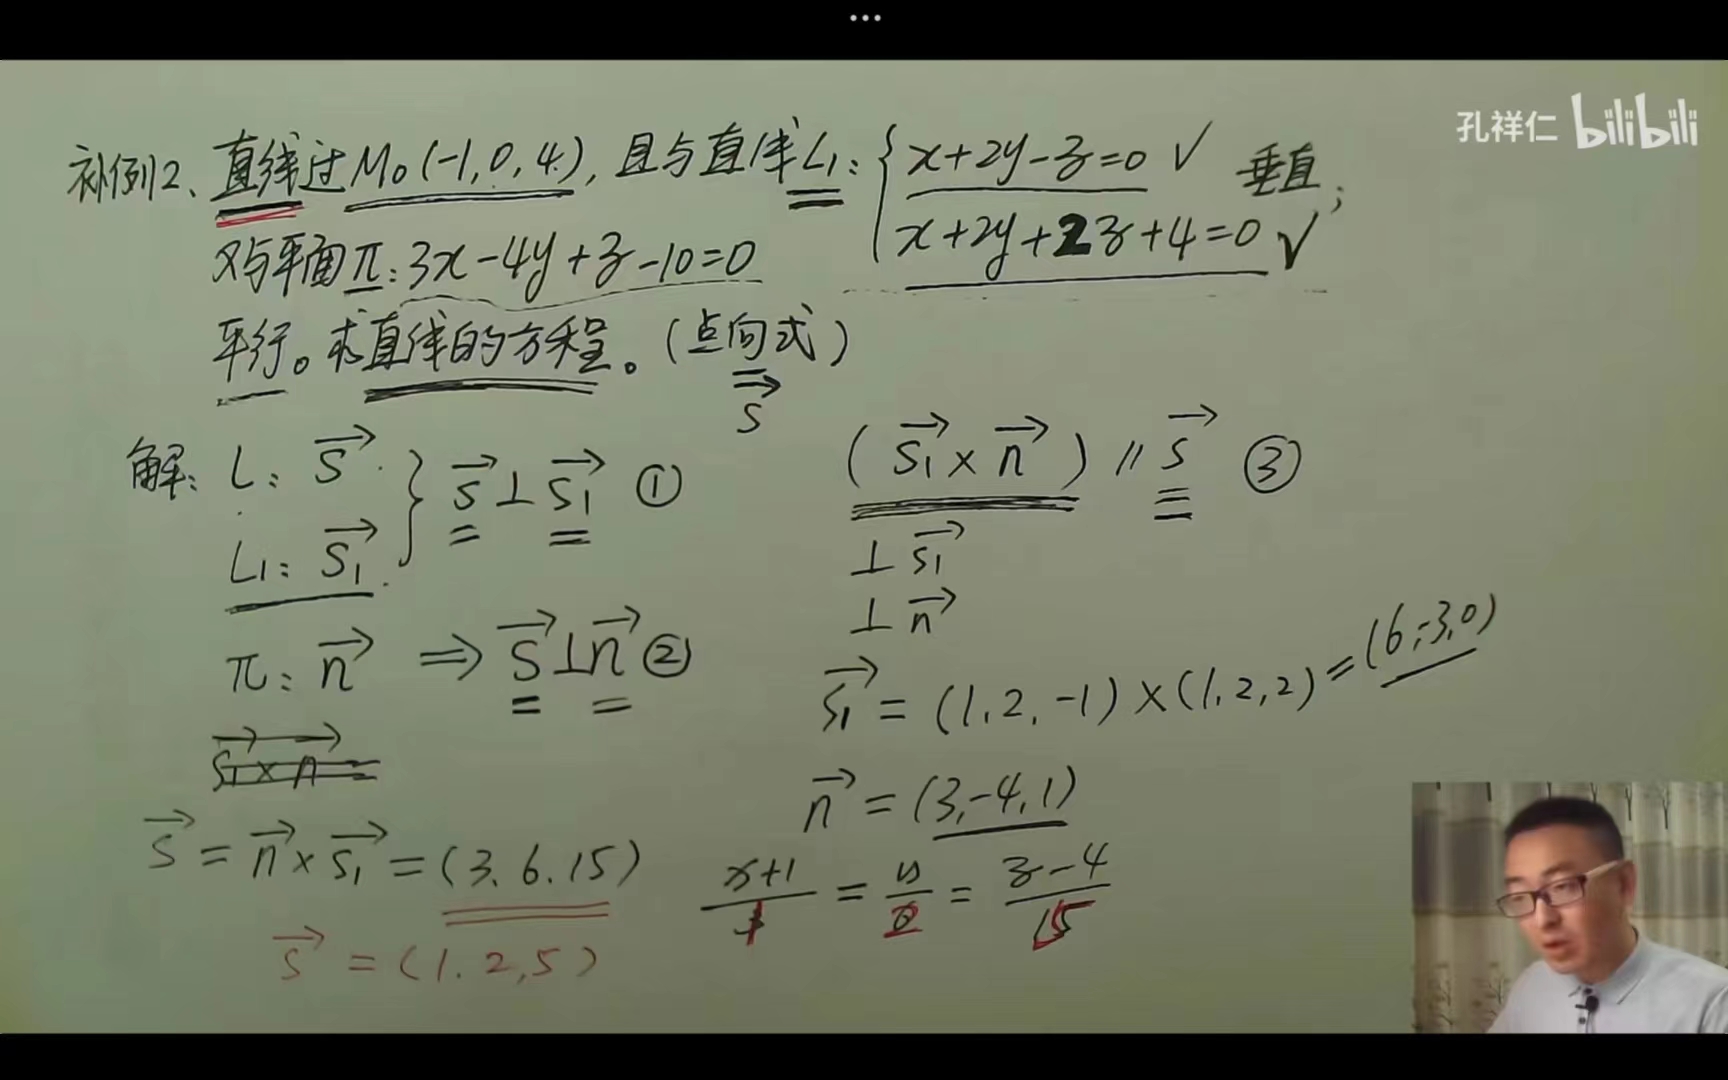 ...
孔祥仁 bilibili
补例2、直线过M₀(-1,0,4),且与直线L₁:{x+2y-z=0 √ 垂直;
x+2y+2z+4=0 √
又与平面π:3x-4y+z-10=0
平行。求直线的方程。(点向式)
s⃗
解:L:s⃗ } s⃗⊥s₁⃗ ①
L₁:s₁⃗
π:n⃗ ⇒ s⃗⊥n⃗ ②
s₁⃗×n⃗
s⃗=n⃗×s₁⃗=(3.6.15)
s⃗=(1.2,5)
(s₁⃗×n⃗)∥s⃗ ③
⊥s₁⃗
⊥n⃗
s₁⃗=(1.2.-1)×(1.2,2)=(6,-3,0)
n⃗=(3,-4,1)
x+1/1=y/2=z-4/5